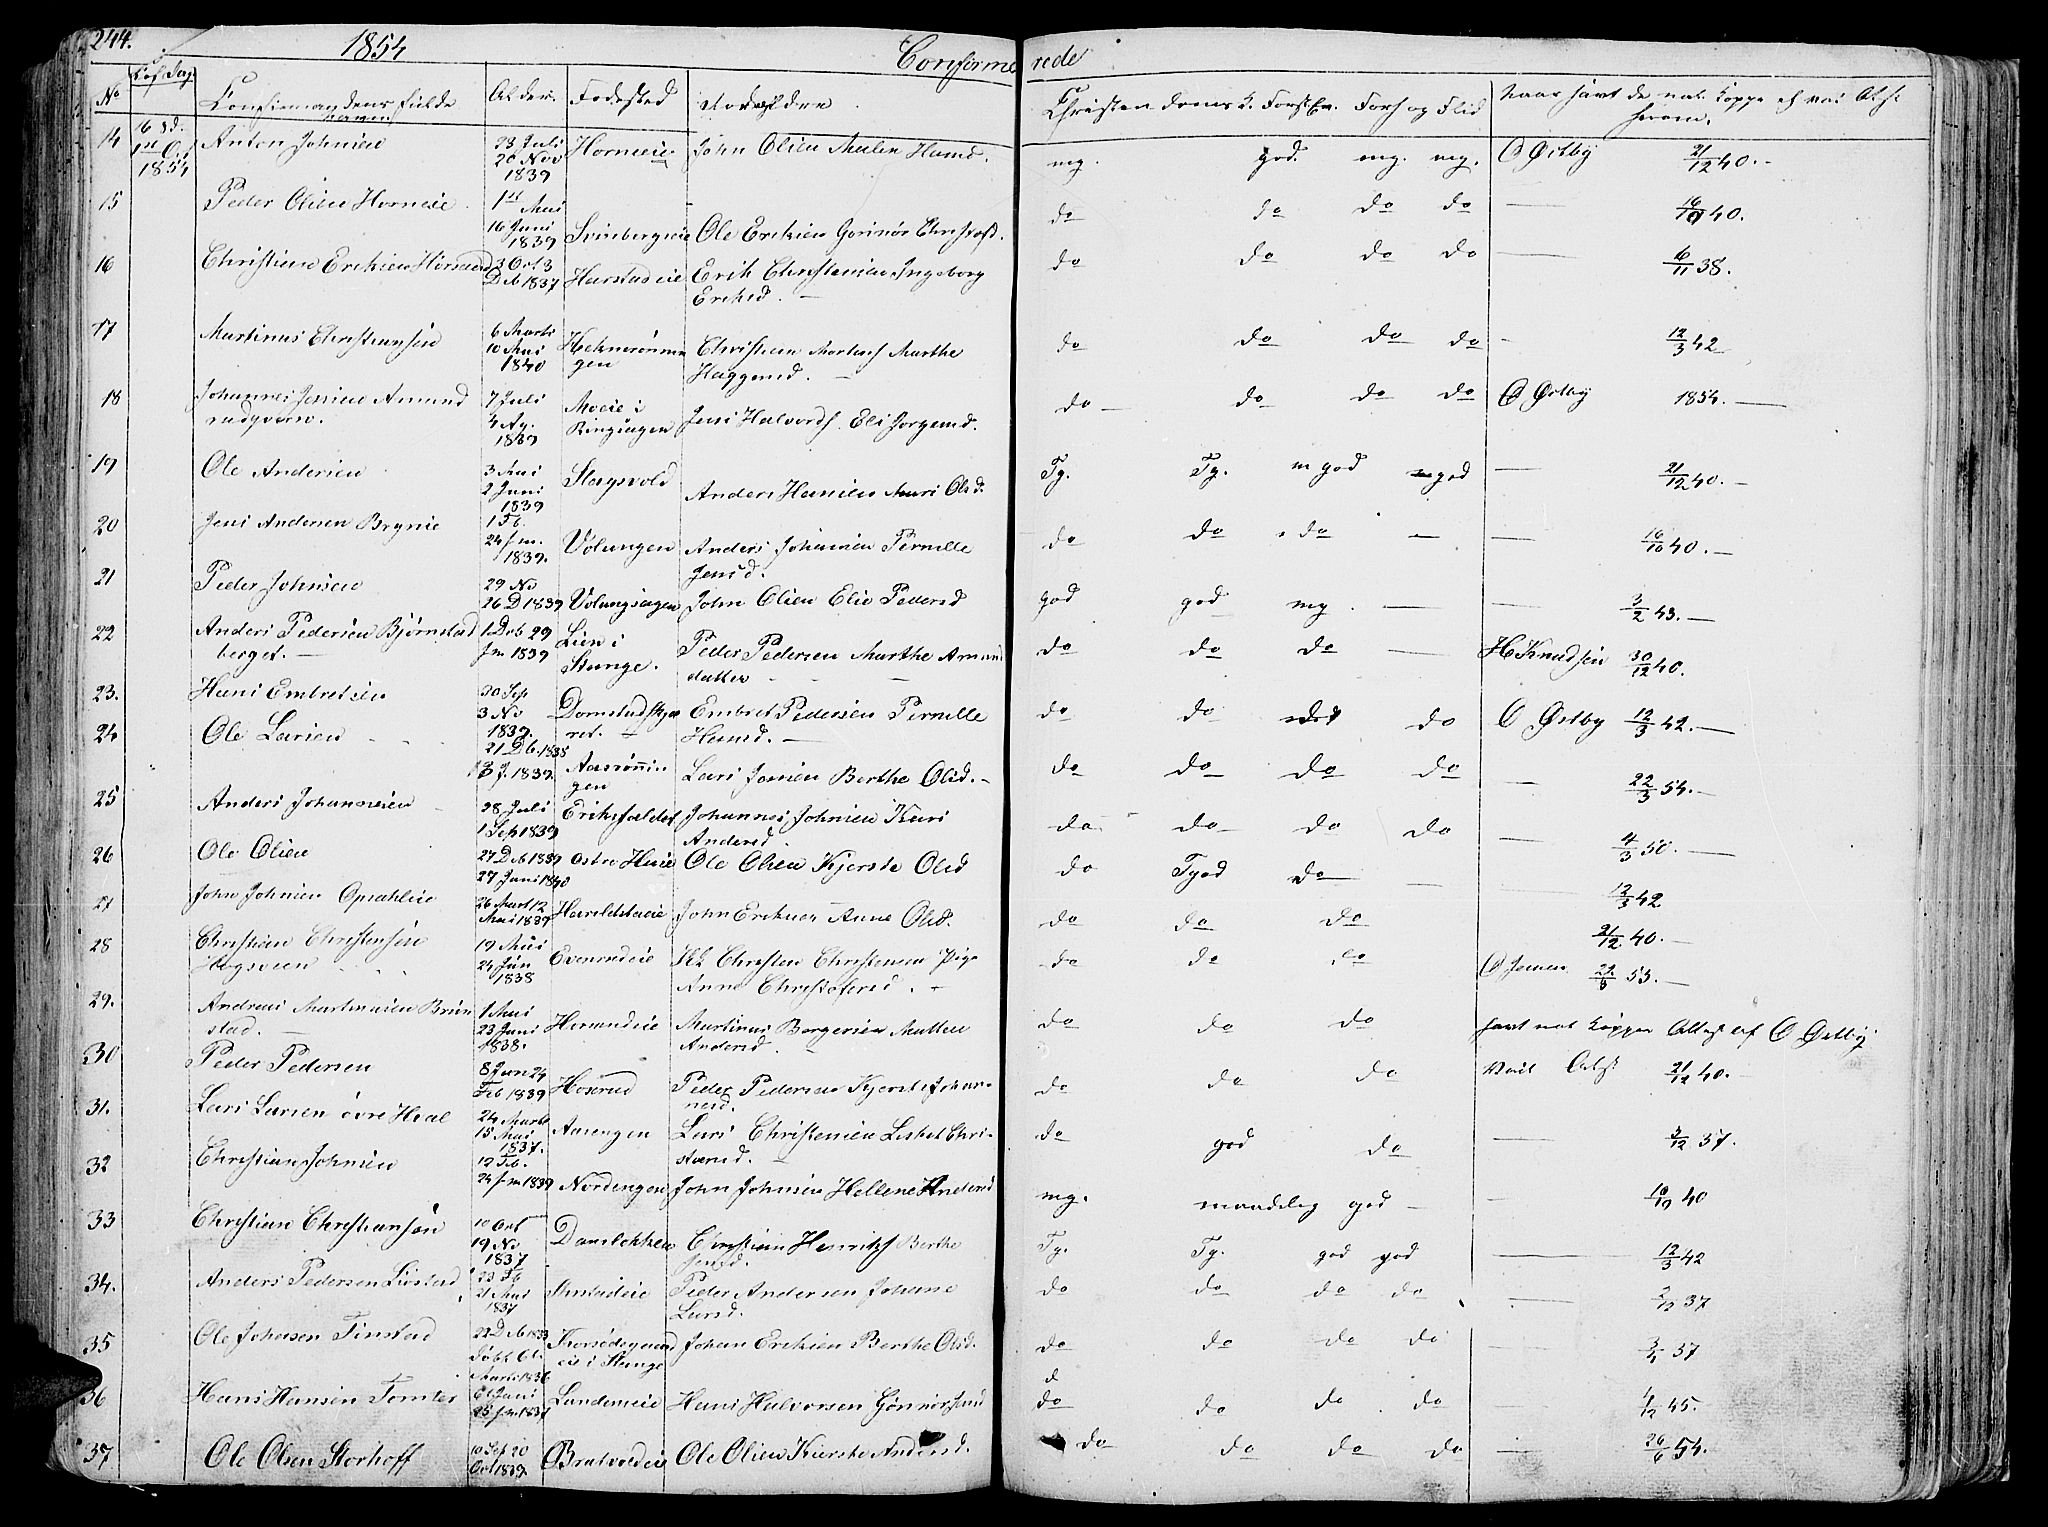 244.
1854
Conferme rede
No Cof. Dag Alder. Fødested Forældre
Christendoms K. Forst Ev. Forh og Flid
14 16 Sd. 1854 Anton Johnsen 23 Juli 20 Nov 1839 Horneie John Olsen Malen Hansd. mg. god. mg. mg. O Østby 21/12 40.
15 Peder Olsen Horneie 1st Mai 16 Juni 1839 Svinbergeie Ole Eriksen Gorinør Christofd. do do do do — 16/10 40.
16 Christian Eriksen 3 Oct 3 Deb 1837 Harstadeie Erik Christensen Ingeborg Eriksd. do do do do — 6/11 38.
17 Martinus Christiansen 6 Marts 10 Mai 1840 Christian Martins Marthe Haggensd. do do do do - 12/3 42
18 Johannes Jensen Amundrudgvern. 7 Juli 4 Ag. 1839 Moeie i Ringsagen Jens Halvords. Eli Jorgensd. do do do do O Østby 1854.
19 Ole Andersen 3 Mai 2 Juni 1839 Stagsvold Anders Hansen Mari Olsd. Tg. Tg. m god mgod — 21/12 40.
20 Jens Andersen Brynie 1 Fb. 24 f.m. 1839. Volungen Anders Johansen Pernille Jensd. do do do — — 16/10 40.
21 Peder Johnsen 29 No 26 D 1839 Volungseigen John Olsen Elie Pedersd god god mg. — — 3/2 43.
22 Anders Pedersen Bjørnstadberget. 1 Deb 29 f.m 1839 Lien i Stange. Peder Pedersen Marthe Amunddatter do do do — H Knudsen 30/12 40.
23. Hans Embretsen 30 Sep 3 No 1839. Embret Pedersen Pernille Hansd. do do do do O Østby 12/3 42.
24 Ole Larsen 21 Db. 1838 1839. Aasrønningen Lars Jansen Berthe Olsd. do do do do — 22/3 54.
25 Anders Johannesen 28 Juli 1 Sep 1839 Eriksfaldet Johannes Johnsen Kari Andersd. do do do do — 4/3 50.
26 Ole Olsen 27 Deb 1839 27 Juni 1840 Ostre Huse Ole Olsen Kjerste Olsd do Tgod do — — 12/3 42
27 John Johnsen Opsahleie 26 Mart 12 Mai 1839 Haraldstaeie John Eriksen Anne Olsd. do do do 21/12 40.
28 Christian Christensen Hagsveen 19 Mai 24 Jun 1838 Evenrudeie Christen Christensen Pige Anne Christofersd. do do do O Jensen 29/8 53.
29. Andreas Martinusen Brunstad. 1 Mai 23 Juni 1838. Martinus Borgersen Mathea Andersd. do do do havt nat Kopper Attest af O Østby
30 Peder Pedersen 8 Jan 24 Feb 1839 Hoserud Peder Pedersen Kjerste Johannesd. do do do Vacc Attest 21/12 40.
31. Lars Larsen øvre Hval 24 Marts 15 Mai 1837. Aasengen Lars Christensen Lisbet Christensd. do god do — 3/12 37.
32 Christian Johnsen 12 Fb. 24 f.m 1839 Nordengen John Johnsen Hellene Andersd mg. maadelig god — — 18/10 40
33 Christian Christiansen 10 Oct 19 No 1837 Danslokken Christian Henriks Berthe Jensd. Tg. Tg. god god — 12/3 42
34. Anders Pedersen Liestad 21 Mai 1837 Peder Andersen Johanne Larsd. do do do do — 2/12 37
35 Ole Johansen Finstad 22 Deb 1833 døbt Marts 1836 Korsødegaardeie i Stange Johan Eriksen Berthe Olsd. do do do do — 37
36 Hans Hansen Tomter 6 Juni 25 f.m 1837 Lundeneie Hans Halvorsen Gønnor do do do do 1/12 45.
37 Ole Olsen Storhoff 10 Sep 20 Oct 1839. Bratvoldeie Ole Olsen Kierste Andersd. do do do do — 26/6 54.